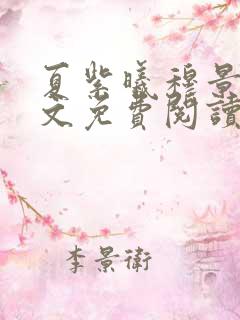 夏紫曦穆景
文免費閱讀
李景衛